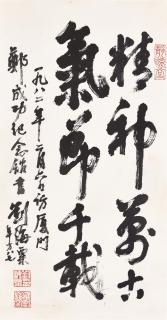 精神萬古
氣節千載
一九八二年二月六日訪廈門
鄭成功紀念館書
劉海粟
年方八七